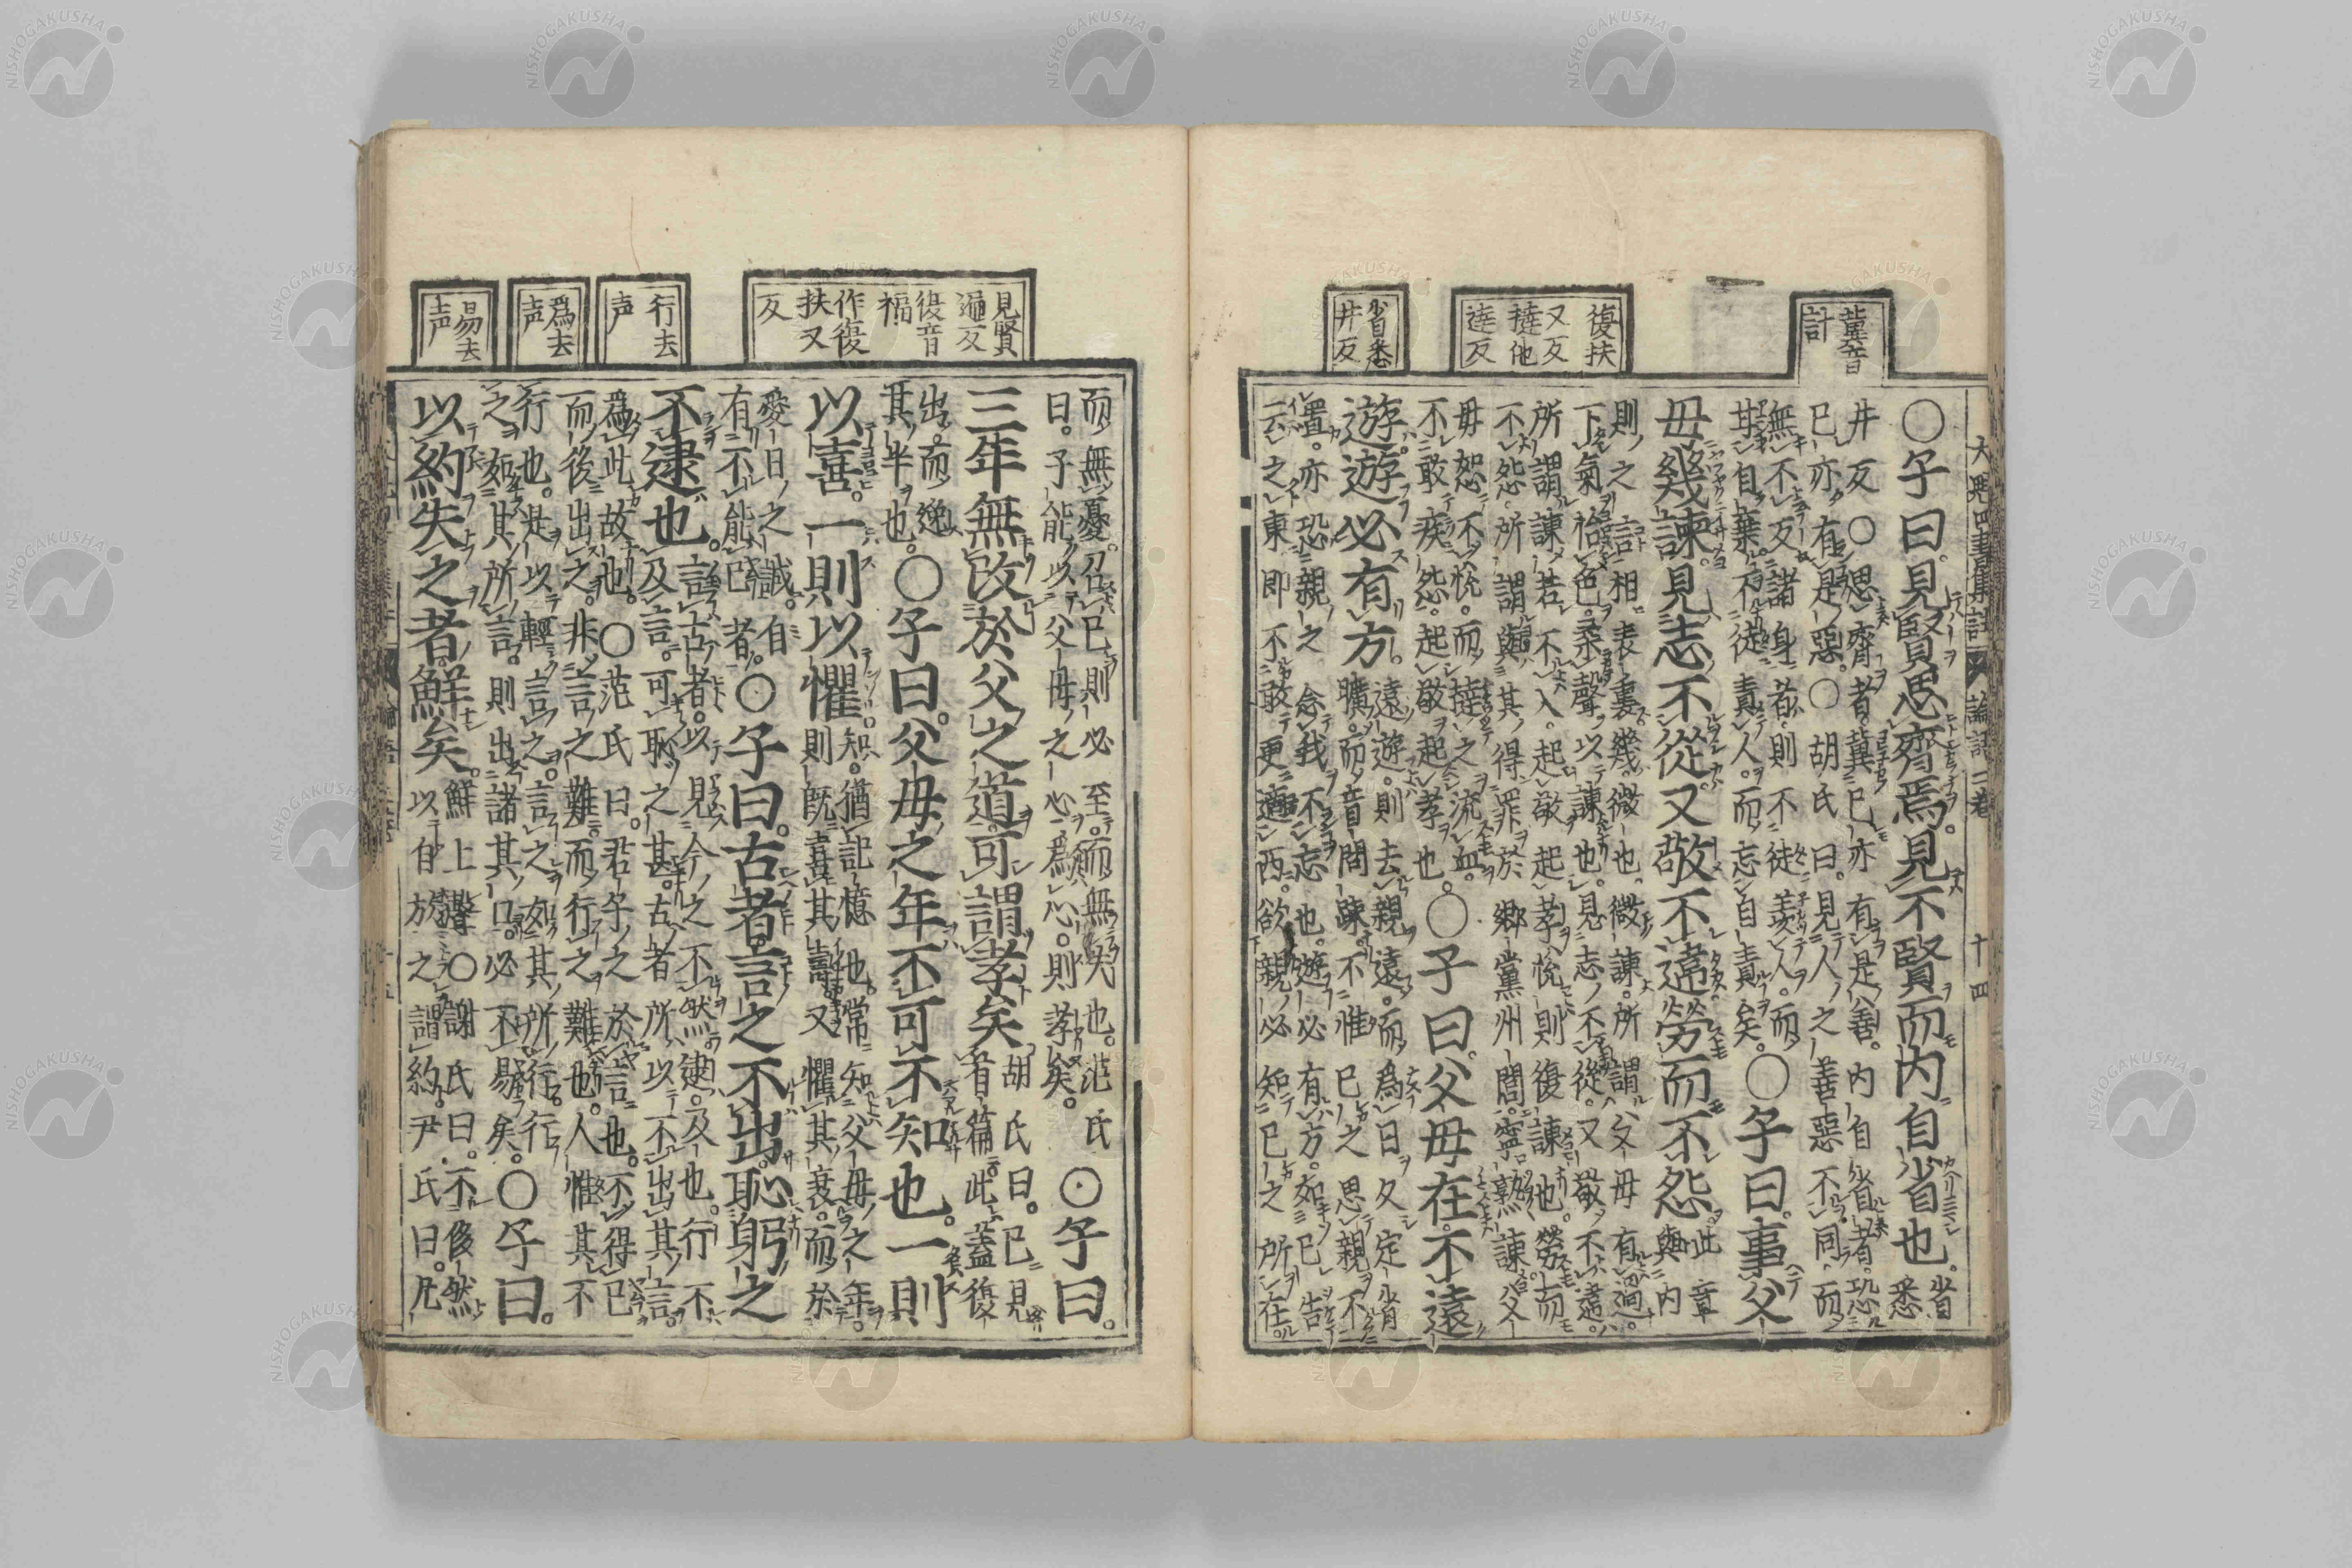 冀音
計
復扶
又反
撻他
達反
省悉
井反
大魁四書集註 論語二卷 十四
○子曰。見賢思齊焉。見不賢而内自省也。省悉
井反○思齊者。冀己亦有是善。内自省者。恐
己亦有是惡。○胡氏曰。見人之善惡不同。而
無不反諸身者。則不徒羨人。而
甘自棄。不徒責人。而忘自責矣。○子曰。事父
母幾諫。見志不從。又敬不違。勞而不怨。此章
與内
則之言相表裏。幾。微也。微諫。所謂父母有過。
下氣怡色。柔聲以諫也。見志不從。又敬不違。
所謂諫若不入。起敬起孝。悦則復諫也。勞而
不怨。所謂與其得罪於郷黨州閭。寧熟諫。父
母恕不悦。而撻之流血。
不敢疾怨。起敬起孝也。○子曰。父母在。不遠
遊。遊必有方。遠遊。則去親遠。而為日久。定省
曠。而音問疎。不惟己之思親不
置。亦恐親之念我不忘也。遊必有方。如己告
云之東。即不敢更適西。欲親必知己之所在。
見賢
遍反
復音
福
作復
扶又
反
行去
声
爲去
声
易去
声
而無憂。召己則必至。而無失也。范氏
曰。子能以父母之心爲心。則孝矣。○子曰。
三年無改於父之道。可謂孝矣。胡氏曰。已見
首篇。此蓋復
出。而逸
其半也。○子曰。父母之年。不可不知也。一則
以喜。一則以懼。知。猶記憶也。常知父母之年。
則既喜其壽。又懼其衰。而於
愛日之誠。自
有不能已者。○子曰。古者言之不出。恥躬之
不逮也。言古者。以見今之不然。逮。及也。行不
及言。可恥之甚。古者所以不出其言。
爲此故也。○范氏曰。君子之於言也。不得已
而後出之。非言之難。而行之難也。人惟其不
行也。是以輕言之。言之如其所行。行
之如其所言。則出諸其口。必不易矣。○子曰。
以約失之者。鮮矣。鮮上聲○謝氏曰。不侈然
以自放之謂約。尹氏曰。凡